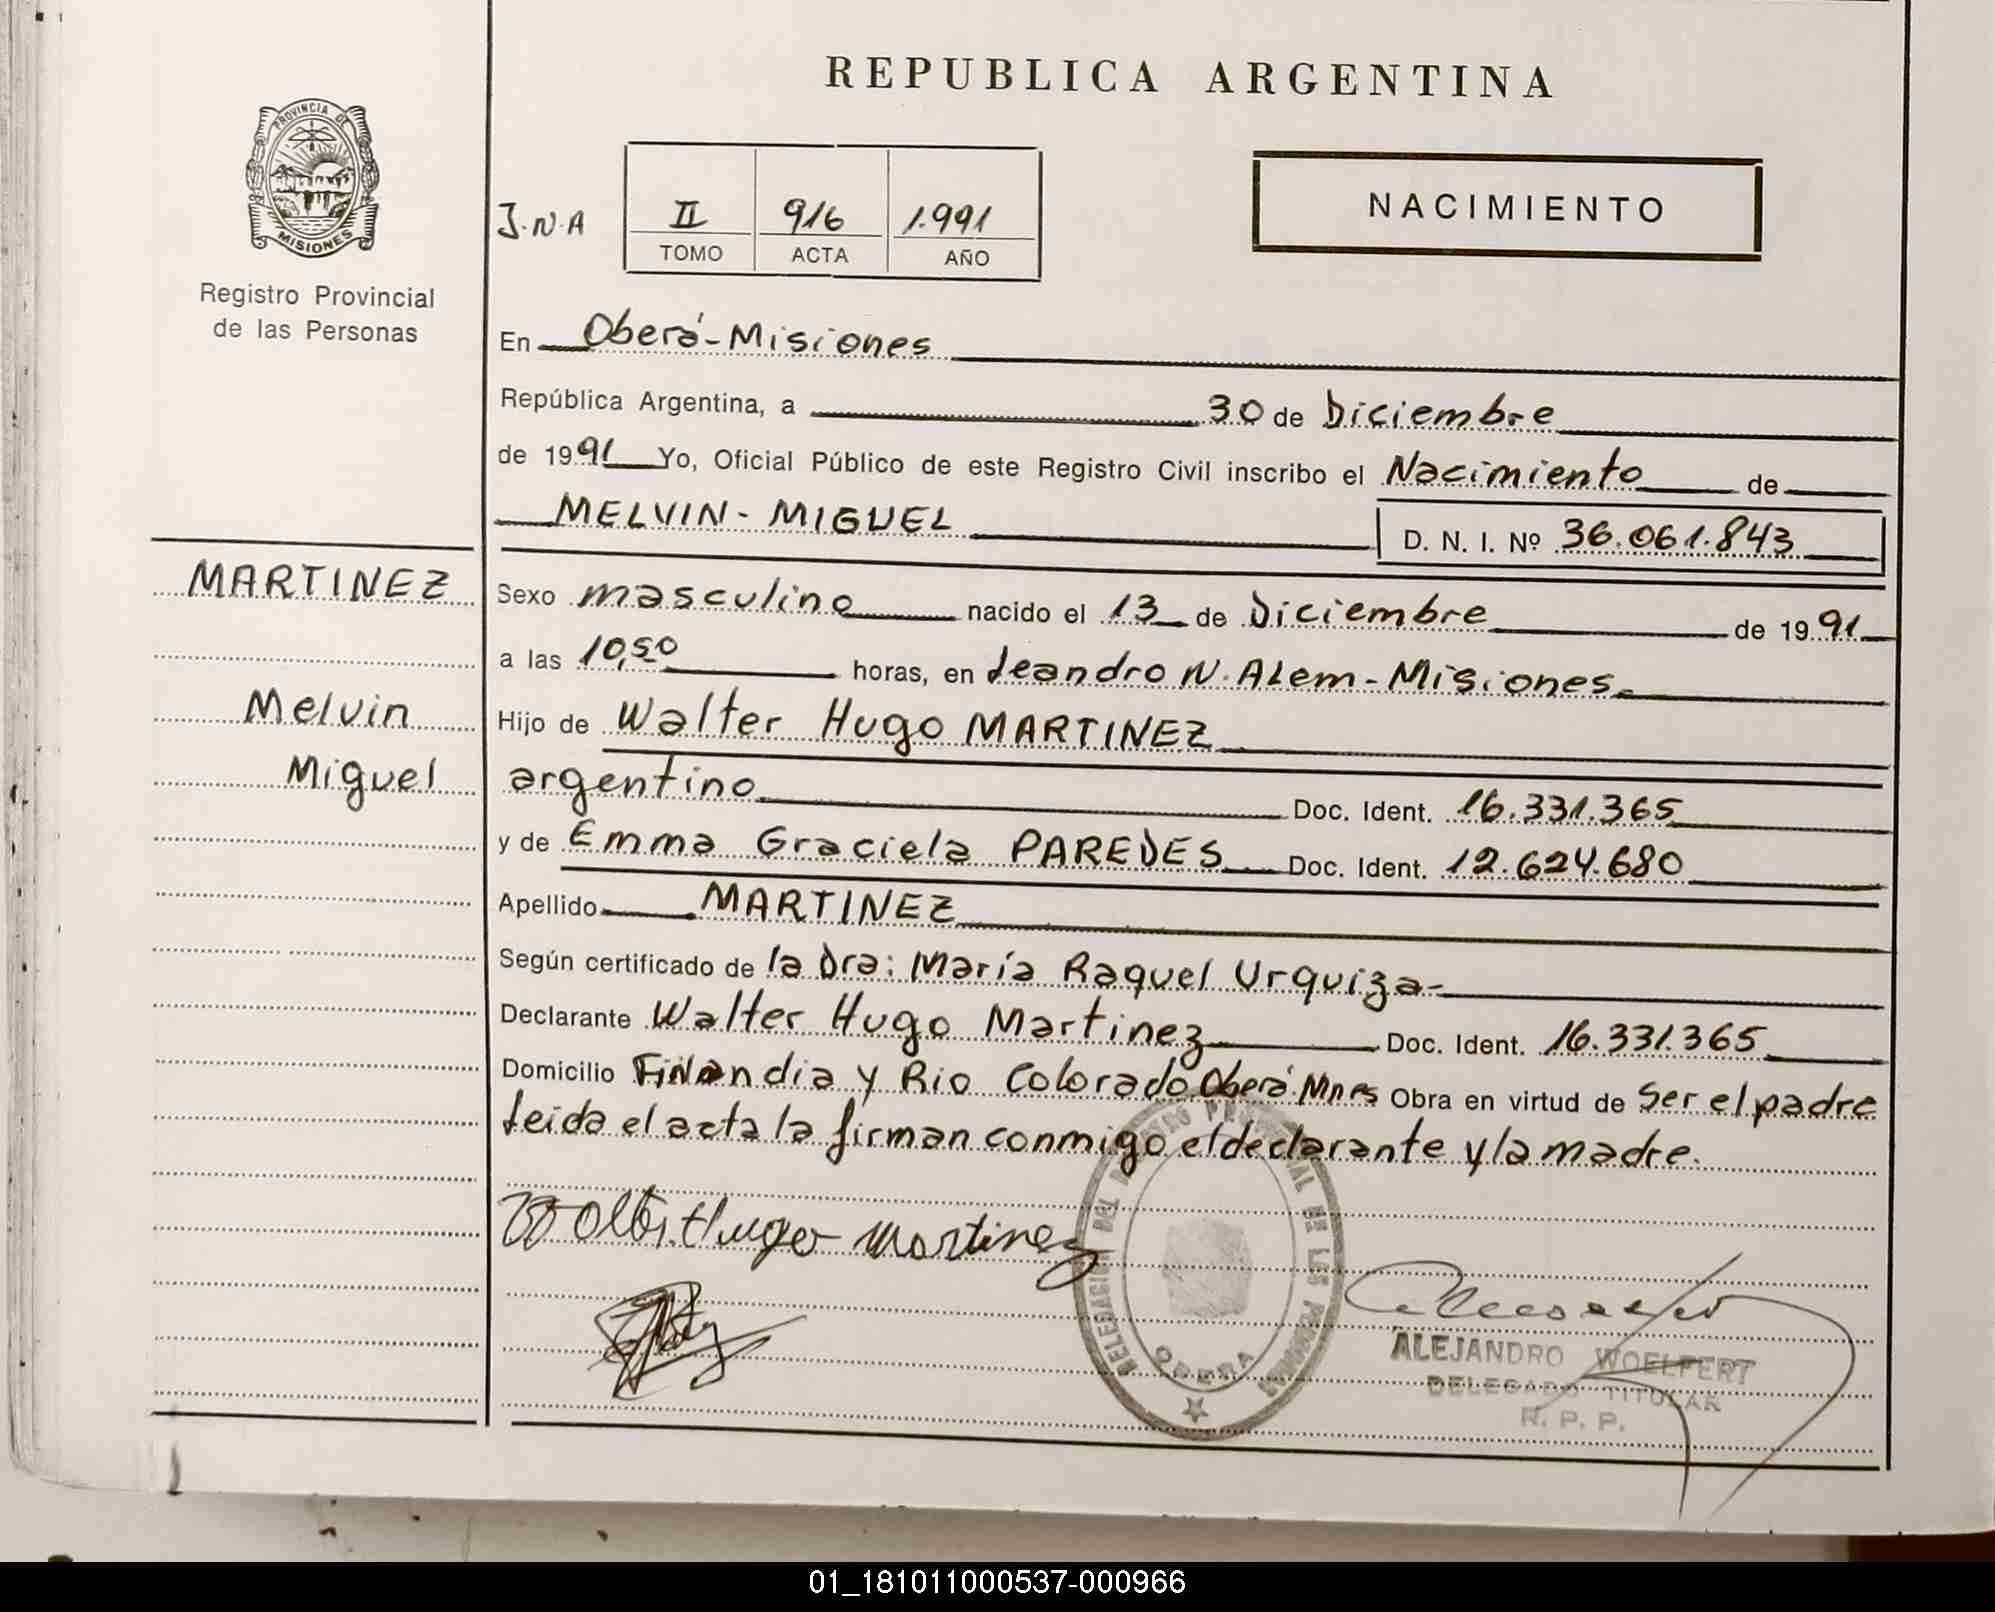 REPUBLICA ARGENTINA
PROVINCIA DE
MISIONES
Registro Provincial
de las Personas
J.N.A
II 916 1.991
TOMO ACTA AÑO
NACIMIENTO
En Oberá-Misiones
República Argentina, a 30 de Diciembre
de 1991 Yo, Oficial Público de este Registro Civil inscribo el Nacimiento de
MELVIN-MIGUEL D. N. I. Nº 36.061.843
MARTINEZ
Melvin
Miguel
Sexo masculino nacido el 13 de Diciembre de 1991
a las 10,50 horas, en Leandro N. Alem-Misiones.
Hijo de Walter Hugo MARTINEZ
argentino Doc. Ident. 16.331.365
y de Emma Graciela PAREDES Doc. Ident. 12.624.680
Apellido MARTINEZ
Según certificado de la Dra: María Raquel Urquiza-
Declarante Walter Hugo Martinez Doc. Ident. 16.331.365
Domicilio Finlandia y Rio Colorado Oberá Mnes Obra en virtud de Ser el padre
Leida el acta la firman conmigo el declarante y la madre.
Hugo Martinez
DELEGACION DEL REGISTRO PROVINCIAL DE LAS PERSONAS
OBERA
ALEJANDRO WOELFERT
DELEGADO TITULAR
R. P. P.
01_181011000537-000966